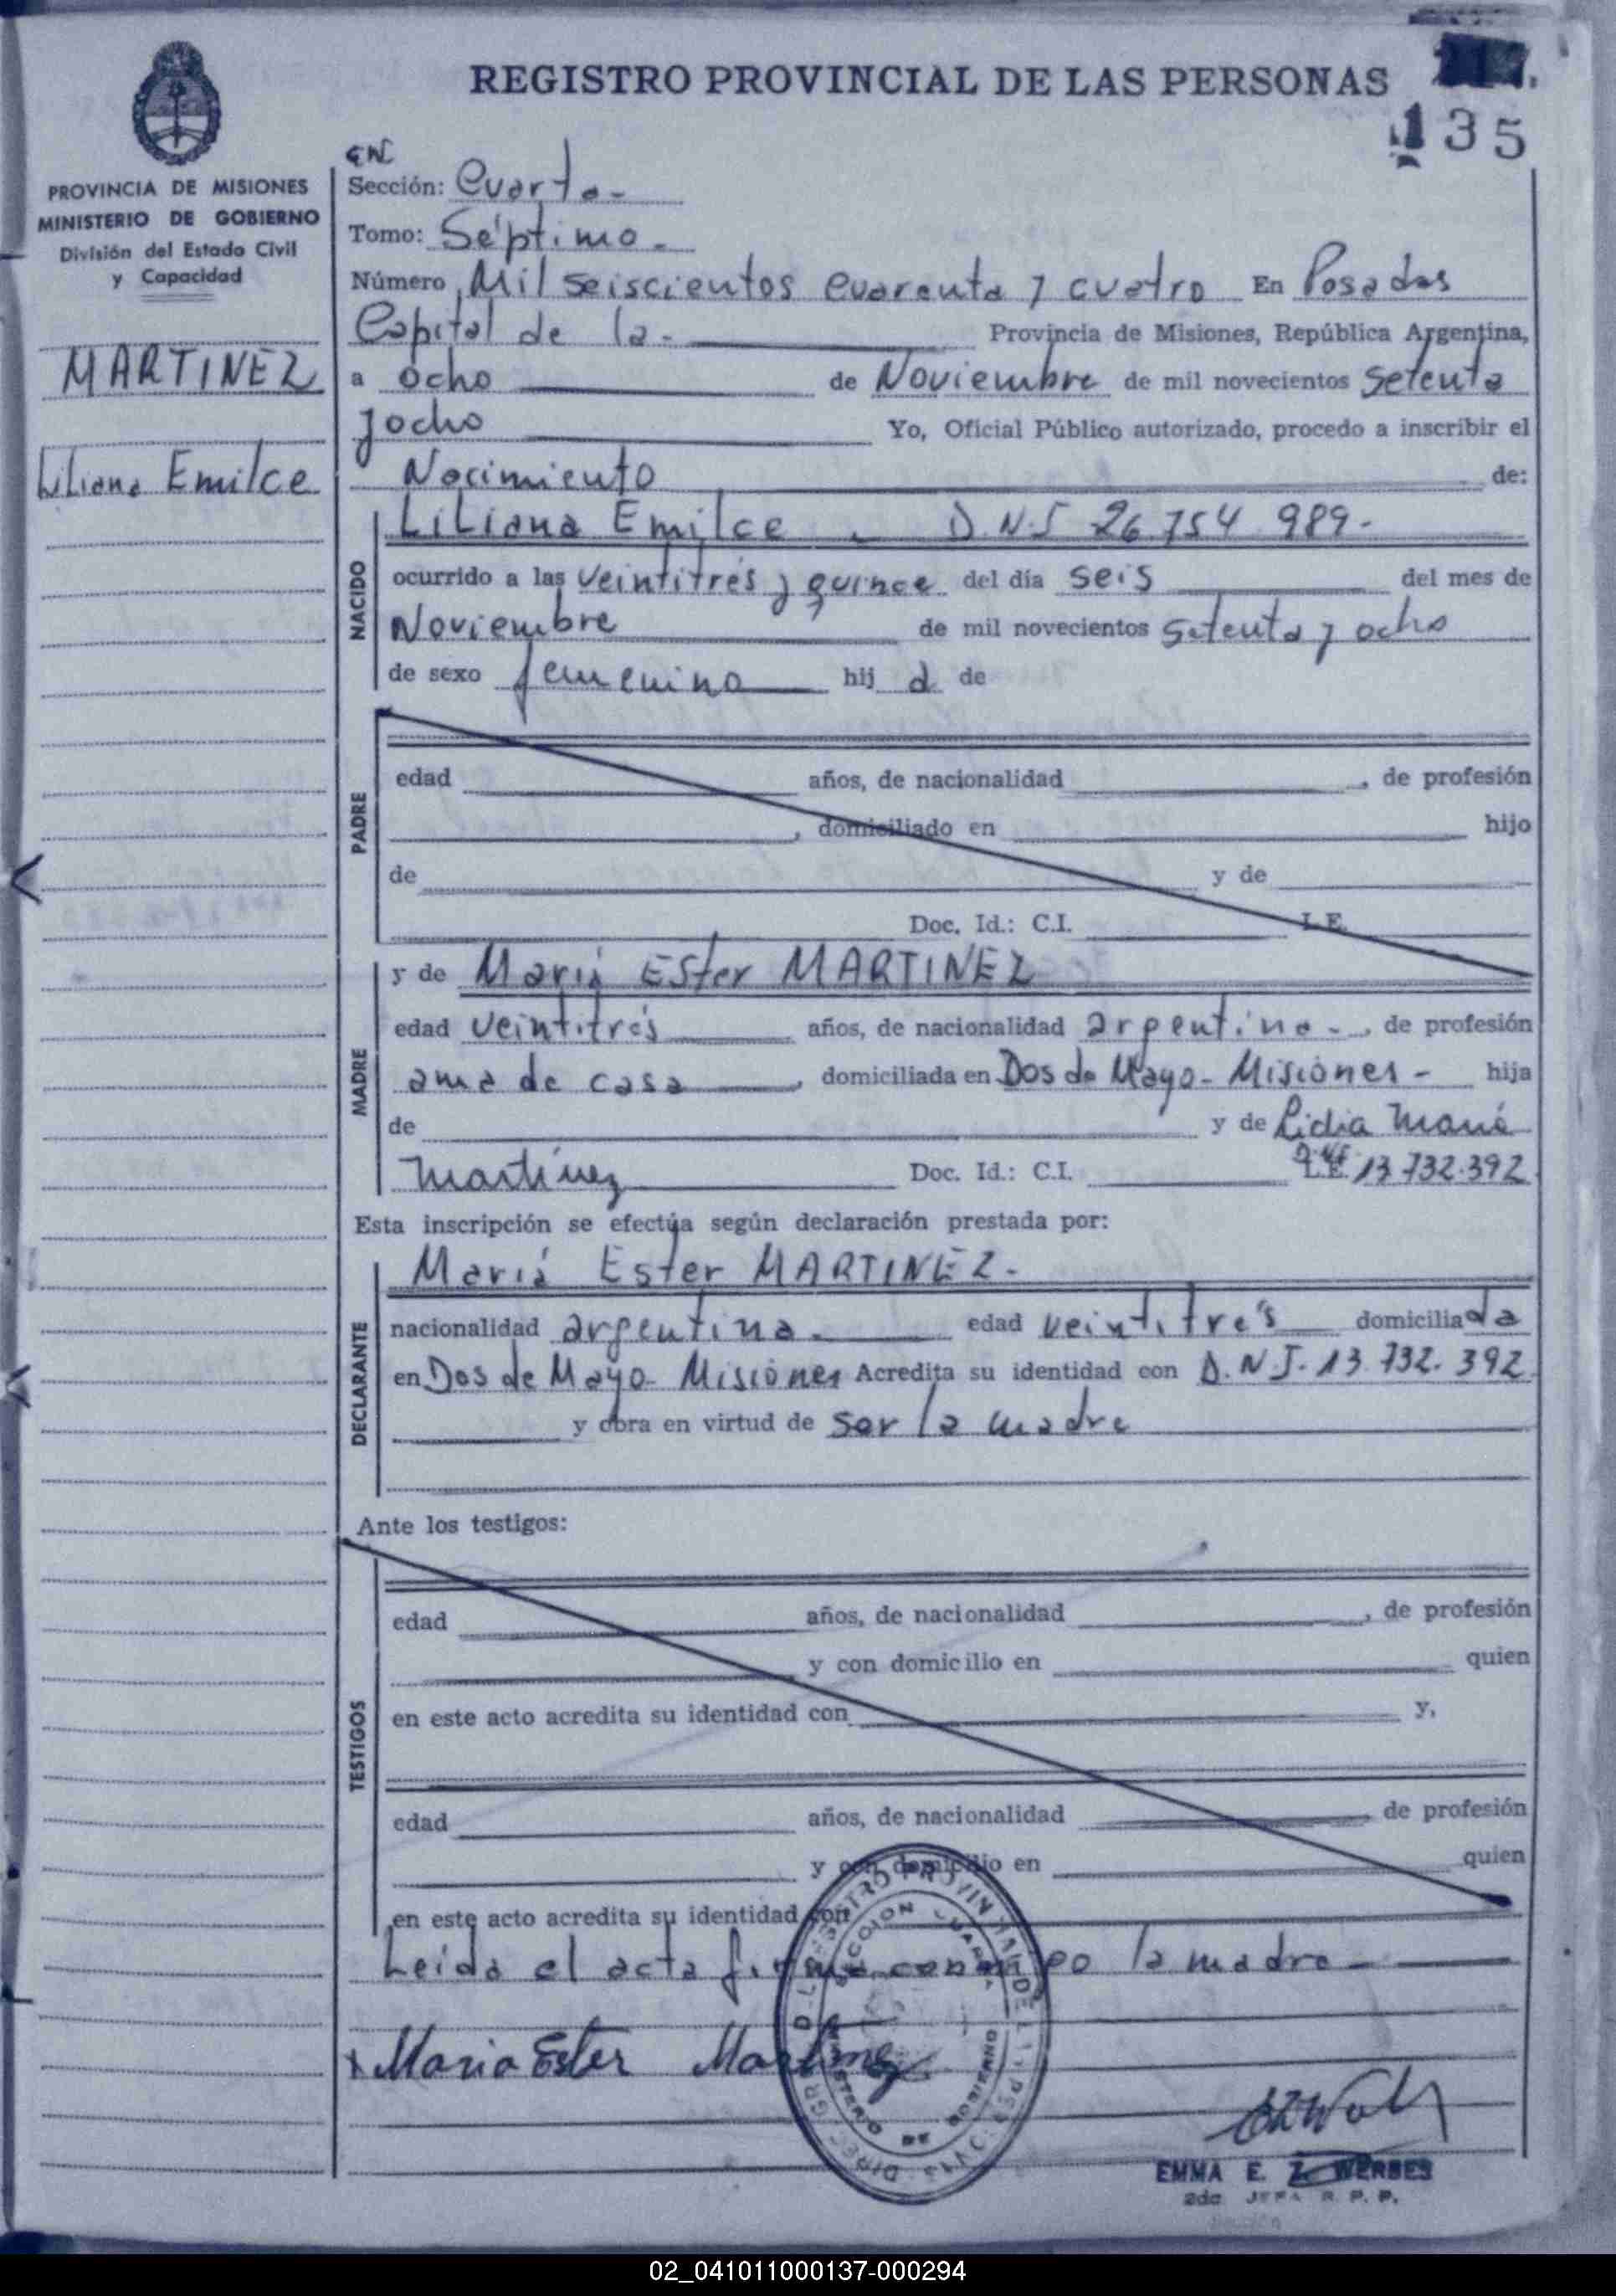 REGISTRO PROVINCIAL DE LAS PERSONAS
135
PROVINCIA DE MISIONES
MINISTERIO DE GOBIERNO
División del Estado Civil
y Capacidad
MARTINEZ
Liliana Emilce
Sección: Cuarta-
Tomo: Séptimo-
Número Mil seiscientos cuarenta y cuatro En Posadas
Capital de la- Provincia de Misiones, República Argentina,
a ocho de Noviembre de mil novecientos setenta
y ocho Yo, Oficial Público autorizado, procedo a inscribir el
Nacimiento de:
NACIDO
Liliana Emilce - D.N.I 26.754 989-
ocurrido a las veintitrés y quince del día seis del mes de
Noviembre de mil novecientos setenta y ocho
de sexo femenino hij a de
PADRE
edad años, de nacionalidad , de profesión
, domiciliado en hijo
de y de
Doc. Id.: C.I. L.E.
MADRE
y de María Ester MARTINEZ
edad veintitrés años, de nacionalidad argentina-, de profesión
ama de casa , domiciliada en Dos de Mayo- Misiones - hija
de y de Lidia María
Martínez Doc. Id.: C.I. L.E. 13.732.392
Esta inscripción se efectúa según declaración prestada por:
DECLARANTE
María Ester MARTINEZ-
nacionalidad argentina- edad veintitrés domiciliada
en Dos de Mayo- Misiones Acredita su identidad con D.N.I. 13.732.392
y obra en virtud de ser la madre
Ante los testigos:
TESTIGOS
edad años, de nacionalidad , de profesión
y con domicilio en quien
en este acto acredita su identidad con y,
edad años, de nacionalidad de profesión
y con domicilio en quien
en este acto acredita su identidad con
Leida el acta firma conmigo la madre-
Maria Ester Martinez
MINISTERIO DE GOBIERNO
EMMA E. Z. WERBES
2da JEFA R. P. P.
02_041011000137-000294